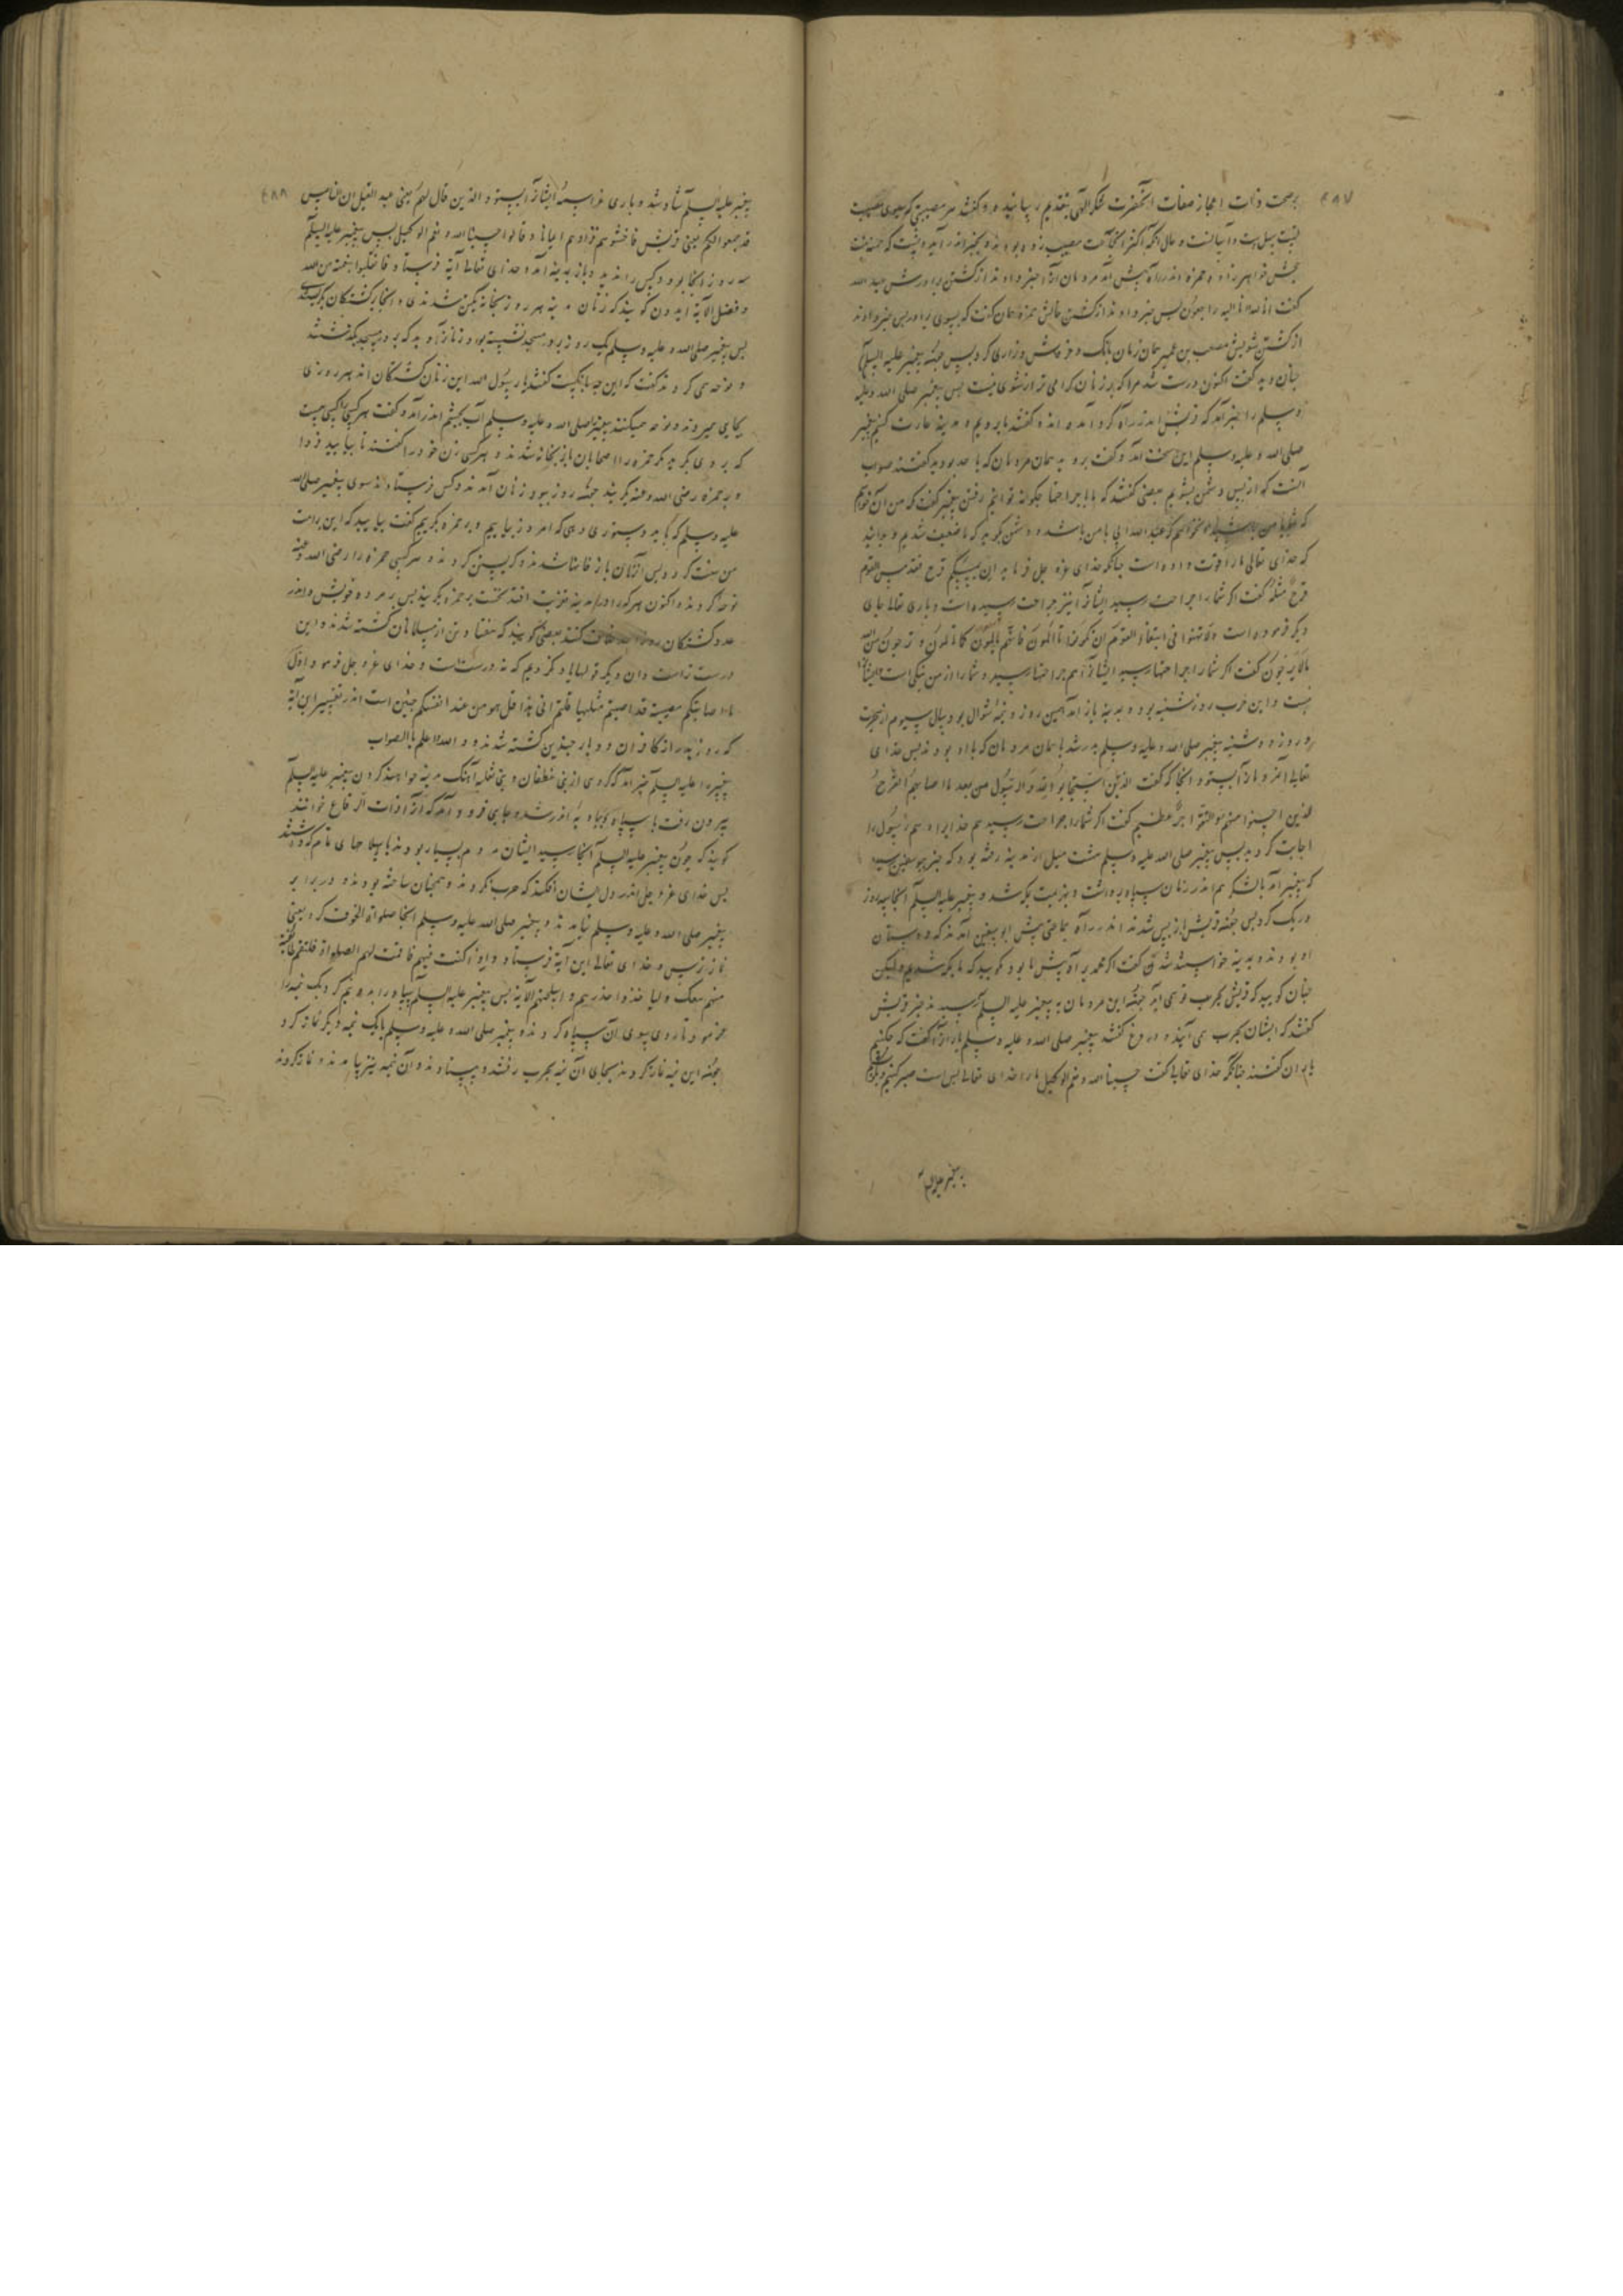 ۴۸۷
بصحت ذات اعجاز صفات آنحضرت شکر الهی بتقدیم رسانیدند و گفتند هر مصیبتی که سوای مصیبت
جحش خواهرزاده حمزه اندر راه پیش آمد مردمان او را خبر دادند از کشتن برادرش عبد الله
گفت انا لله و انا الیه راجعون پس خبر دادند از کشتن خالش حمزه همان گفت که بسوی برادر پس خبر دادند
از کشتن شویش مصعب بن عمیر همان زمان بانک و خروش و زاری کرد پس پیغمبر علیه السلم
چنان دید گفت اکنون درست شد مرا که بر زنان گرامی تر از شوی نیست پس پیغمبر صلی الله و علیه
و سلم را خبر آمد که قریش اندر راه گرد آمده اند و گفتند باز رویم و مدینه غارت کنیم پیغمبر
صلی الله و علیه و سلم این سخت آمد و گفت بروید همان مردمان که با احد بودید گفتند صواب
آنست که از پس دشمن بشویم بعضی گفتند که با جراحتها چگونه توانیم رفتن پیغمبر گفت که من آن خواهم
که خدای تعالی ما را قوت داده است چنانکه خدای عزوجل فرماید ان یمسسکم قرح فقد مس القوم
قرح مثله گفت اگر شما را جراحت رسید ایشانرا نیز جراحت رسیده است و باری تعالی جای
دیگر فرموده است و لا تهنوا فی ابتغاء القوم ان تکونوا تالمون فانهم یالمون کما تالمون و ترجون من الله
ما لا یرجون گفت اگر شما را جراحتها رسید ایشانرا هم جراحتها رسید و شما را از من نیکی است و ایشانرا
نیست و این حرب روز شنبه بوده بمدینه باز آمد همین روز و نیمه شوال بود و سال سیوم از هجرت
و روز دوشنبه پیغمبر صلی الله و علیه و سلم بدر شد با همان مردمان که با او بودند پس خدای
تعالی آنها را بستود آنجا که گفت الذین استجابوا لله و الرسول من بعد ما اصابهم القرح
للذین احسنوا منهم و اتقوا اجر عظیم گفت اگر شما را جراحت رسید هم خدایرا و هم رسول را
اجابت کردید پس پیغمبر صلی الله علیه و سلم هشت میل از مدینه رفته بود که خبر بو سفین رسید
که پیغمبر آمد با لشکر هم اندر زمان سپاه برداشت و بهزیمت بمکه شد و پیغمبر علیه السلم آنجا سه روز
درنگ کرد پس چون قریش باز پس شدند اندر راه جماعتی پیش ابو سفین آمدند که دوستان
او بودند و بمدینه خواستند شدن گفت اگر محمد براه پیش شما بود گویید که ما بمکه شدیم ولیکن
چنان گویید که قریش بحرب تو می آید چون این مردمان به پیغمبر علیه السلم رسیدند خبر قریش
گفتند که ایشان بحرب می آیند و دروغ گفتند پیغمبر صلی الله و علیه و سلم یارانرا گفت که چکنیم
یاران گفتند چنانکه خدای تعالی گفت حسبنا الله و نعم الوکیل ما را خدای تعالی بس است صبر کنیم
پیغمبر علیه السلم
۴۸۸
پیغمبر علیه السلم شاد شد و باری عز اسمه ایشانرا بستود الذین قال لهم یعنی عبد القیل ان الناس
قد جمعوا لکم یعنی قریش فاخشوهم فزادهم ایمانا و قالوا حسبنا الله و نعم الوکیل پس پیغمبر علیه السلم
سه روز آنجا بود و کس را ندید و باز بمدینه آمد و خدای تعالی آیة فرستاد فانقلبوا بنعمة من الله
و فضل الآیة ایدون گویند که زنان مدینه هر روز بخانه یکی شدندی و آنجا بر کشتکان بگریستندی
پس پیغمبر صلی الله و علیه و سلم یک روز بدر مسجد نشسته بود و زنانرا دید که بدر مسجد بگذشتند
و نوحه می کردند گفت که این چه بانگیست گفتند یا رسول الله این زنان کشتکان اند هر روزی
بجایی میروند و نوحه میکنند پیغمبر صلی الله و علیه و سلم آب بچشم اندر آمد و گفت هر کسی را کسی هست
که بر وی بگرید مگر حمزه را اصحابان باز بخانه شدند و هر کسی زن خود را گفتند تا بیایید فردا
و بر حمزه رضی الله و عنه بگریند چون روز ببود زنان آمدند و کس فرستادند سوی پیغمبر صلی الله
علیه و سلم که باید دستوری دهی که امروز بیاییم و بر حمزه بگرییم گفت بیایید که این برامت
من سنت گردد پس آن زنان باز خانها شدند و گریستن کردند و هر کسی حمزه را رضی الله و عنه
نوحه کردند و اکنون هر که را در مدینه تعزیت افتد نخست بر حمزه بگریند پس بر مرده خویش و اندر
عدد کشتکان روز احد خلاف کنند بعضی گویند که هفتاد تن از مسلمانان کشته شدند و این
درست تر است و آن دیگر قولها یاد کردیم که نه درستست و خدای عزوجل فرمود اول
ما اصابتکم مصیبة قد اصبتم مثلیها قلتم انی هذا قل هو من عند انفسکم چنین است اندر تفسیر این آیة
که روز بدر از کافران دو بار چندین کشته شدند و الله اعلم باالصواب
پیغمبر را علیه السلم خبر آمد که گروهی از بنی غطفان و بنی ثعلبه آهنگ مدینه خواهند کردن پیغمبر علیه السلم
بیرون رفت با سپاه و بجایی فرود آمد که آنرا ذات الرقاع خوانند
گویند که چون پیغمبر علیه السلم آنجا رسید ایشان مردم بسیار بودند با سلاحهای تمام
پس خدای عزوجل اندر دل ایشان افکند که حرب نکردند و همچنان ساخته بودند و در برابر
پیغمبر صلی الله و علیه و سلم نیامدند و پیغمبر صلی الله علیه و سلم آنجا صلواة الخوف کرد یعنی
نماز ترس و خدای تعالی این آیة فرستاد و اذا کنت فیهم فاقمت لهم الصلواة فلتقم طائفة
منهم معک و لیاخذوا حذرهم و اسلحتهم الآیة پس پیغمبر علیه السلم سپاه را بدو نیم کرد یک نیمه را
فرمود تا روی سوی آن سپاه کردند و پیغمبر صلی الله و علیه و سلم با یک نیمه دیگر نماز کرد
چون این نیمه نماز کردند بجای آن نیمه بحرب رفتند و بیستادند و آن نیمه نیز بیامدند و نماز کردند